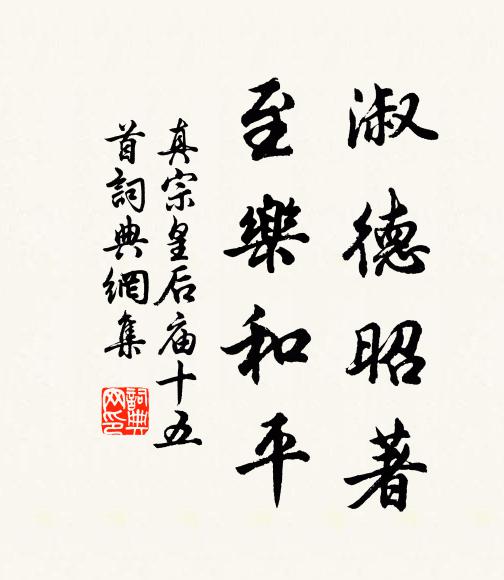 淑德昭著
至樂和平
真宗皇后庙十五
首詞典網集
詞典
网印